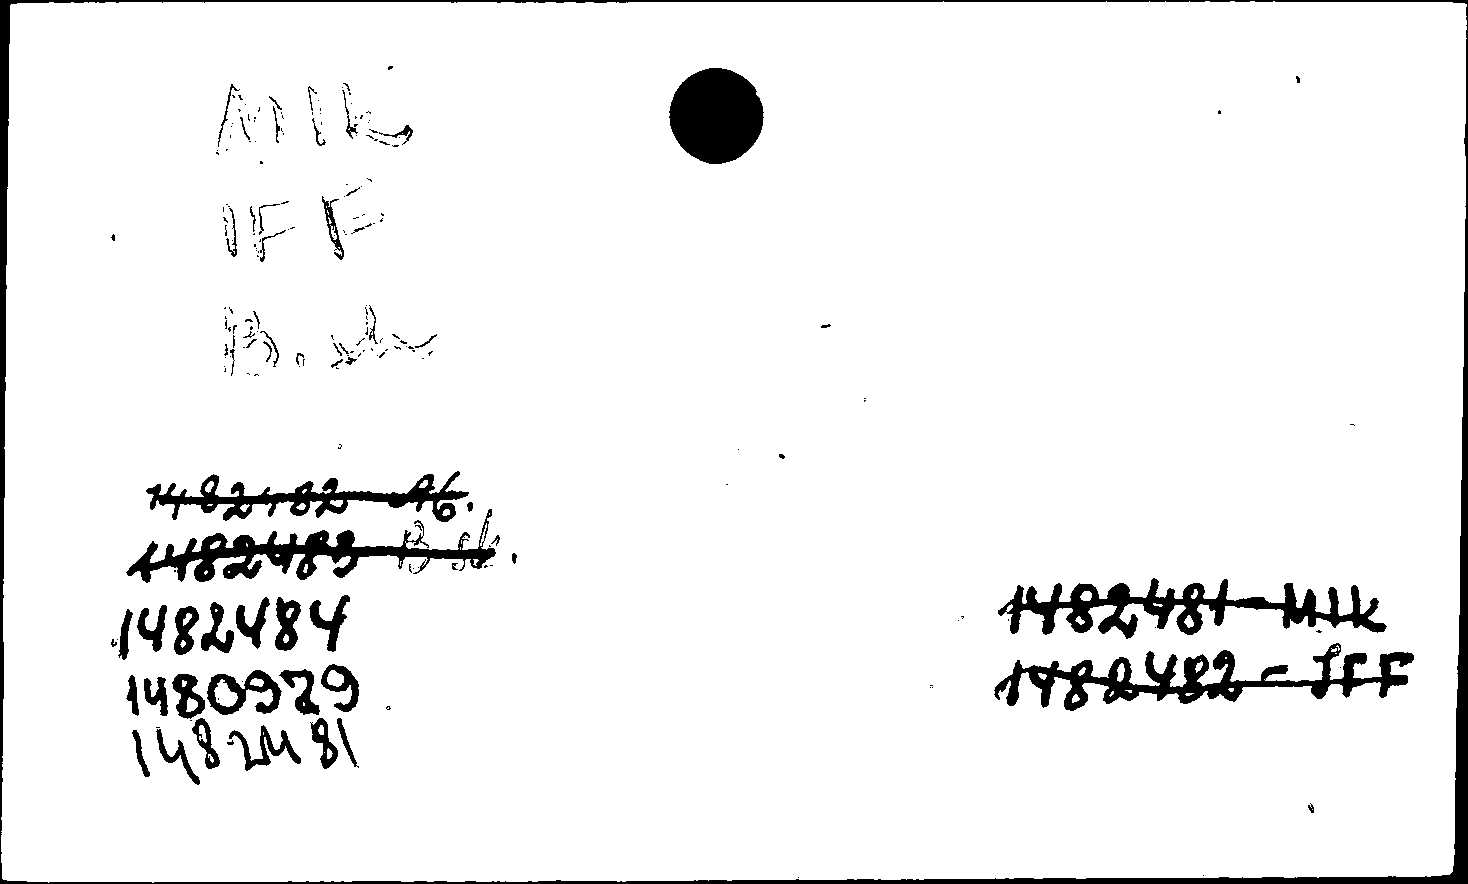 MIK
IFF
1482482 Аб.
1482483 B sk.
1482484
1480979
1482481
1482481 - MIK
1482482 - IFF